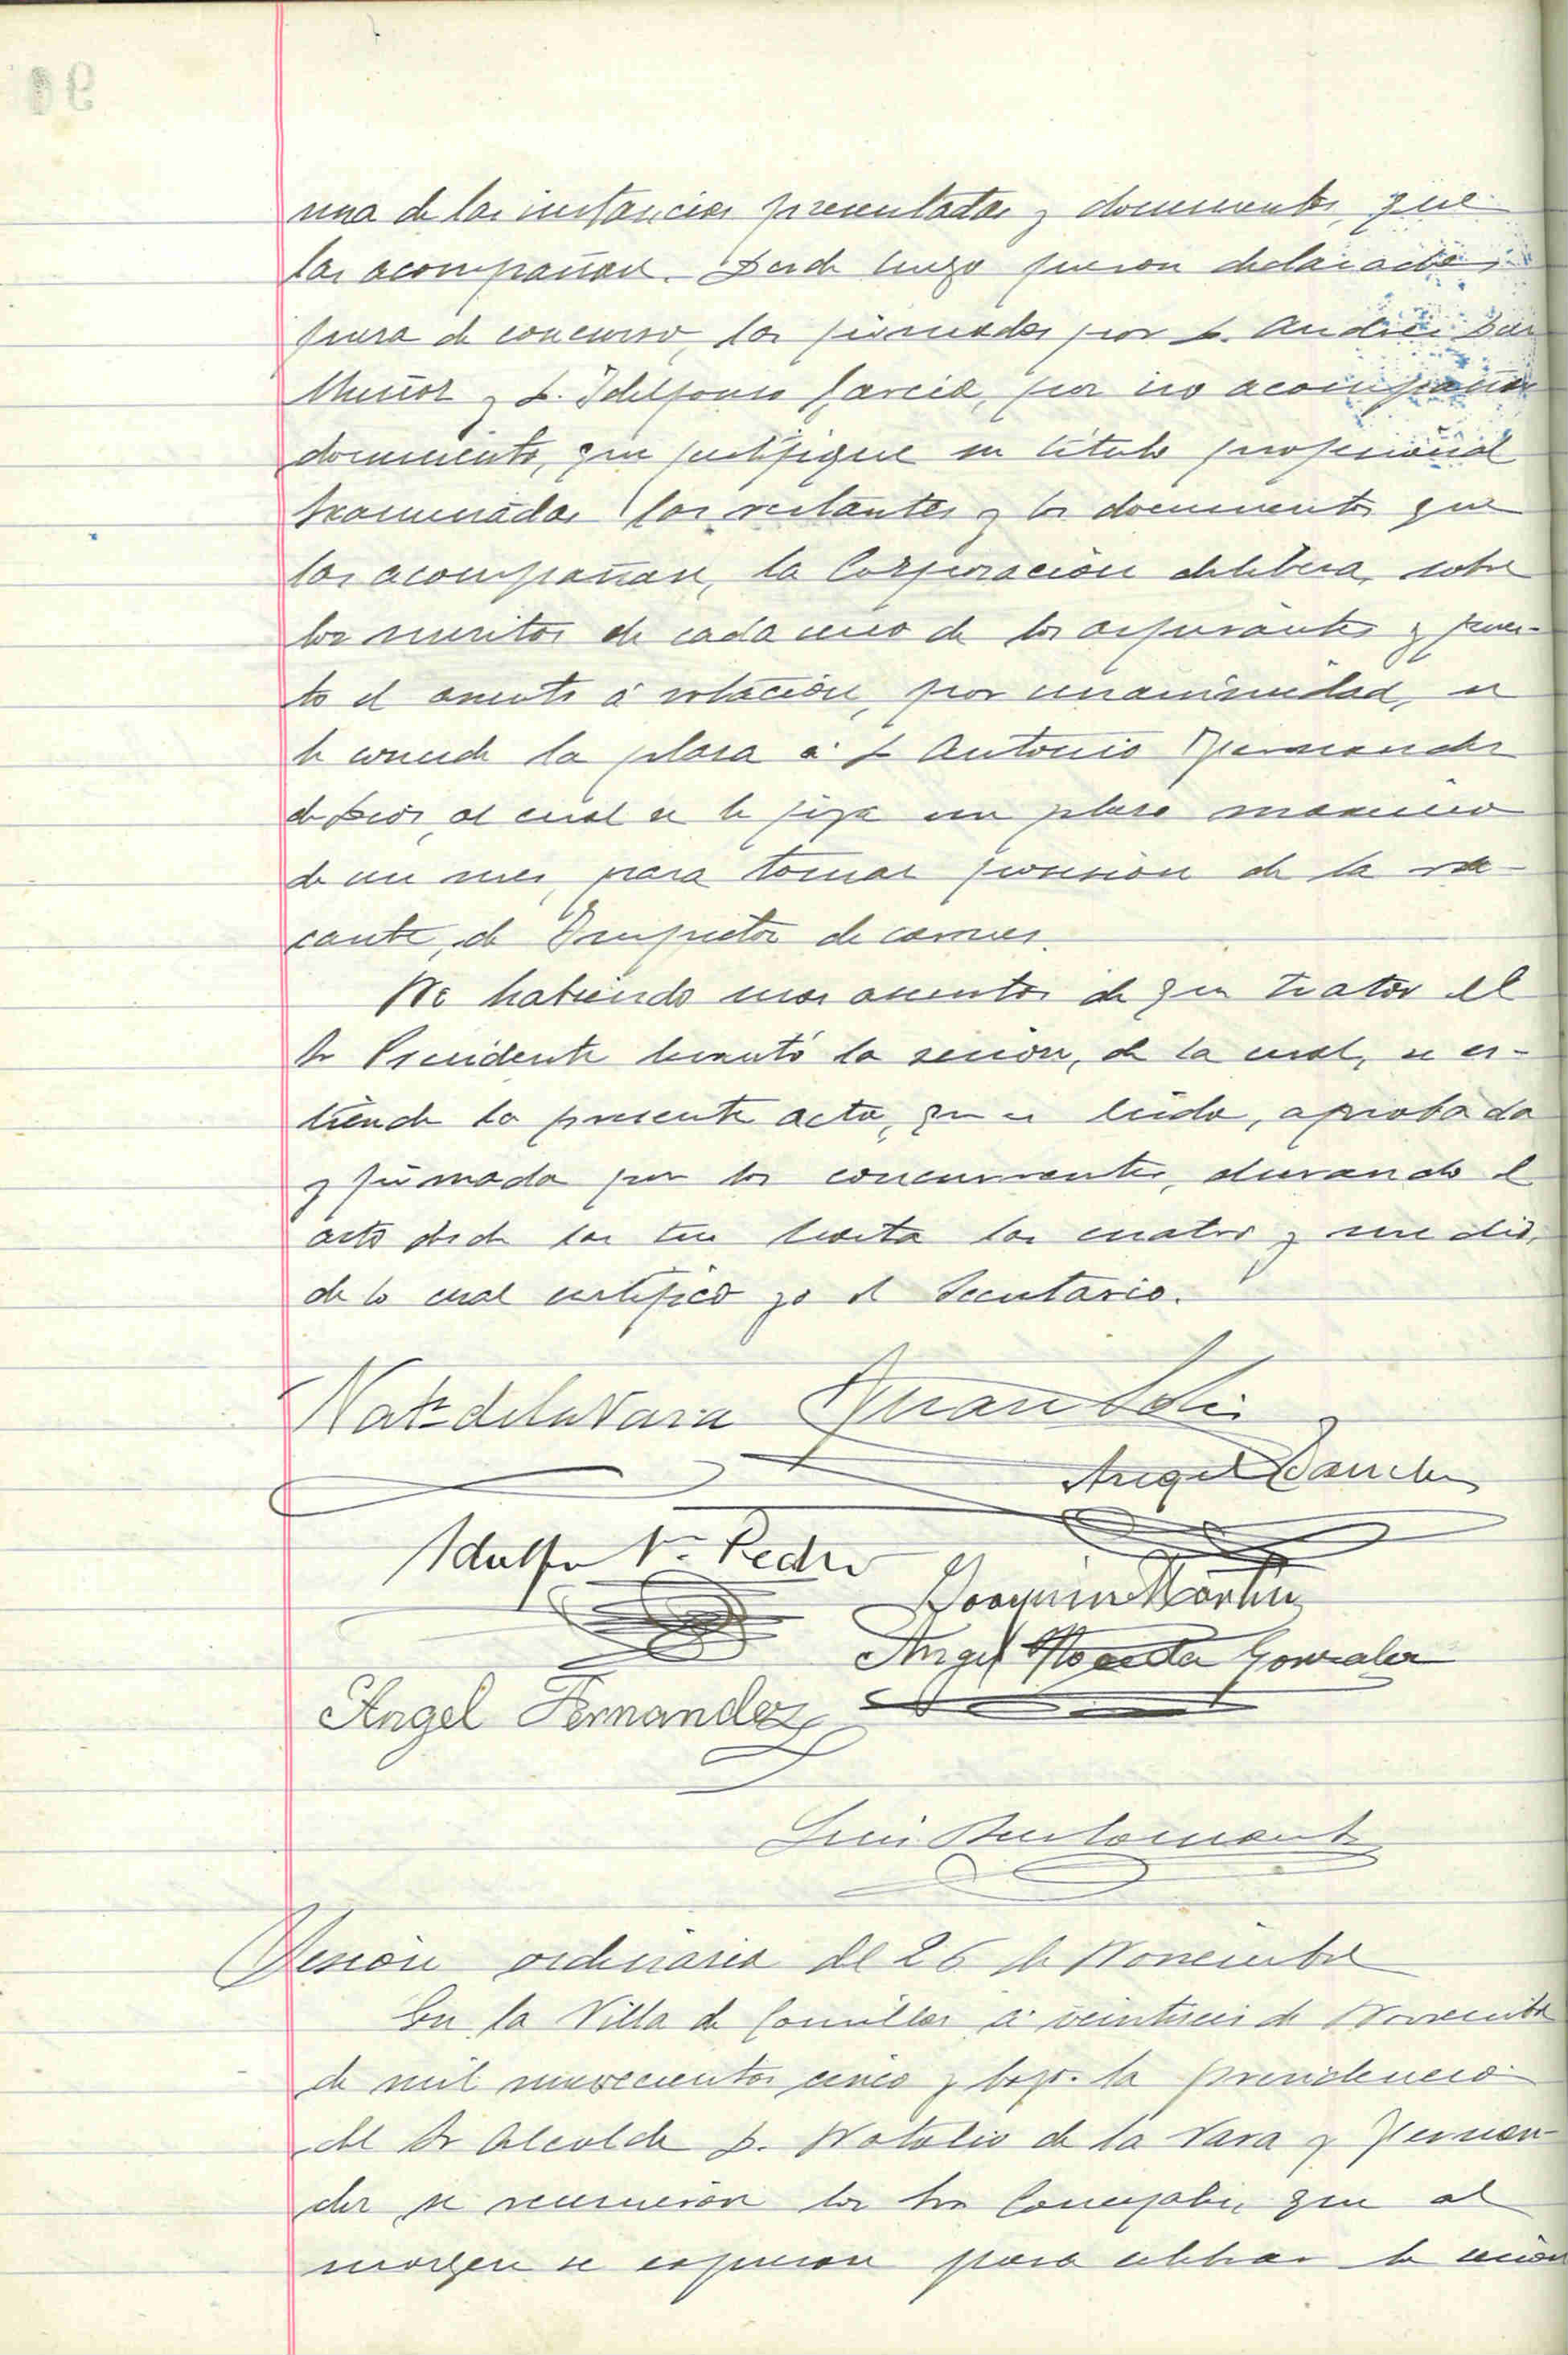 una de las instancias presentadas y documentos, que
las acompañan. Desde luego fueron declaradas,
fuera de concurso, las firmadas por D. Andrés
Muñoz y D. Ildefonso Garcia, por no acompañar
documento, que justifique su titulo profesional
Examinadas las restantes y los documentos que
las acompañan, la Corporación delibera, sobre
los meritos de cada uno de los aspirantes y pues-
to el asunto á votación, por unanimidad, se
le concede la plasa á D Antonio Fernandez
de al cual se le fija un plaso maximo
de un mes, para tomar posesión de la va-
cante, de Inspector de carnes.
No habiendo mas asuntos de que tratar el
Sr Presidente levantó la sesión, de la cual, se es-
tiende la presente acta, que es leida, aprobada
y firmada por los concurrentes, durando el
acto desde las tres hasta las cuatro y media,
de lo cual certifico yo el Secretario.
Nat. de la Vara Juan Solis
Angel Sanchez
Adolfo V. Pedro
Joaquin Martin
Angel Gonzalez
Angel Fernandez
Luis Bustamante
Sesión ordinaria del 26 de Noviembre
En la Villa de Comillas á veintiseis de Noviembre
de mil novecientos cinco y bajo la presidencia
del Sr Alcalde D. Natalio de la Vara y Fernan-
dez se reunieron los Sres Concejales que al
margen se expresan para celebrar la sesión